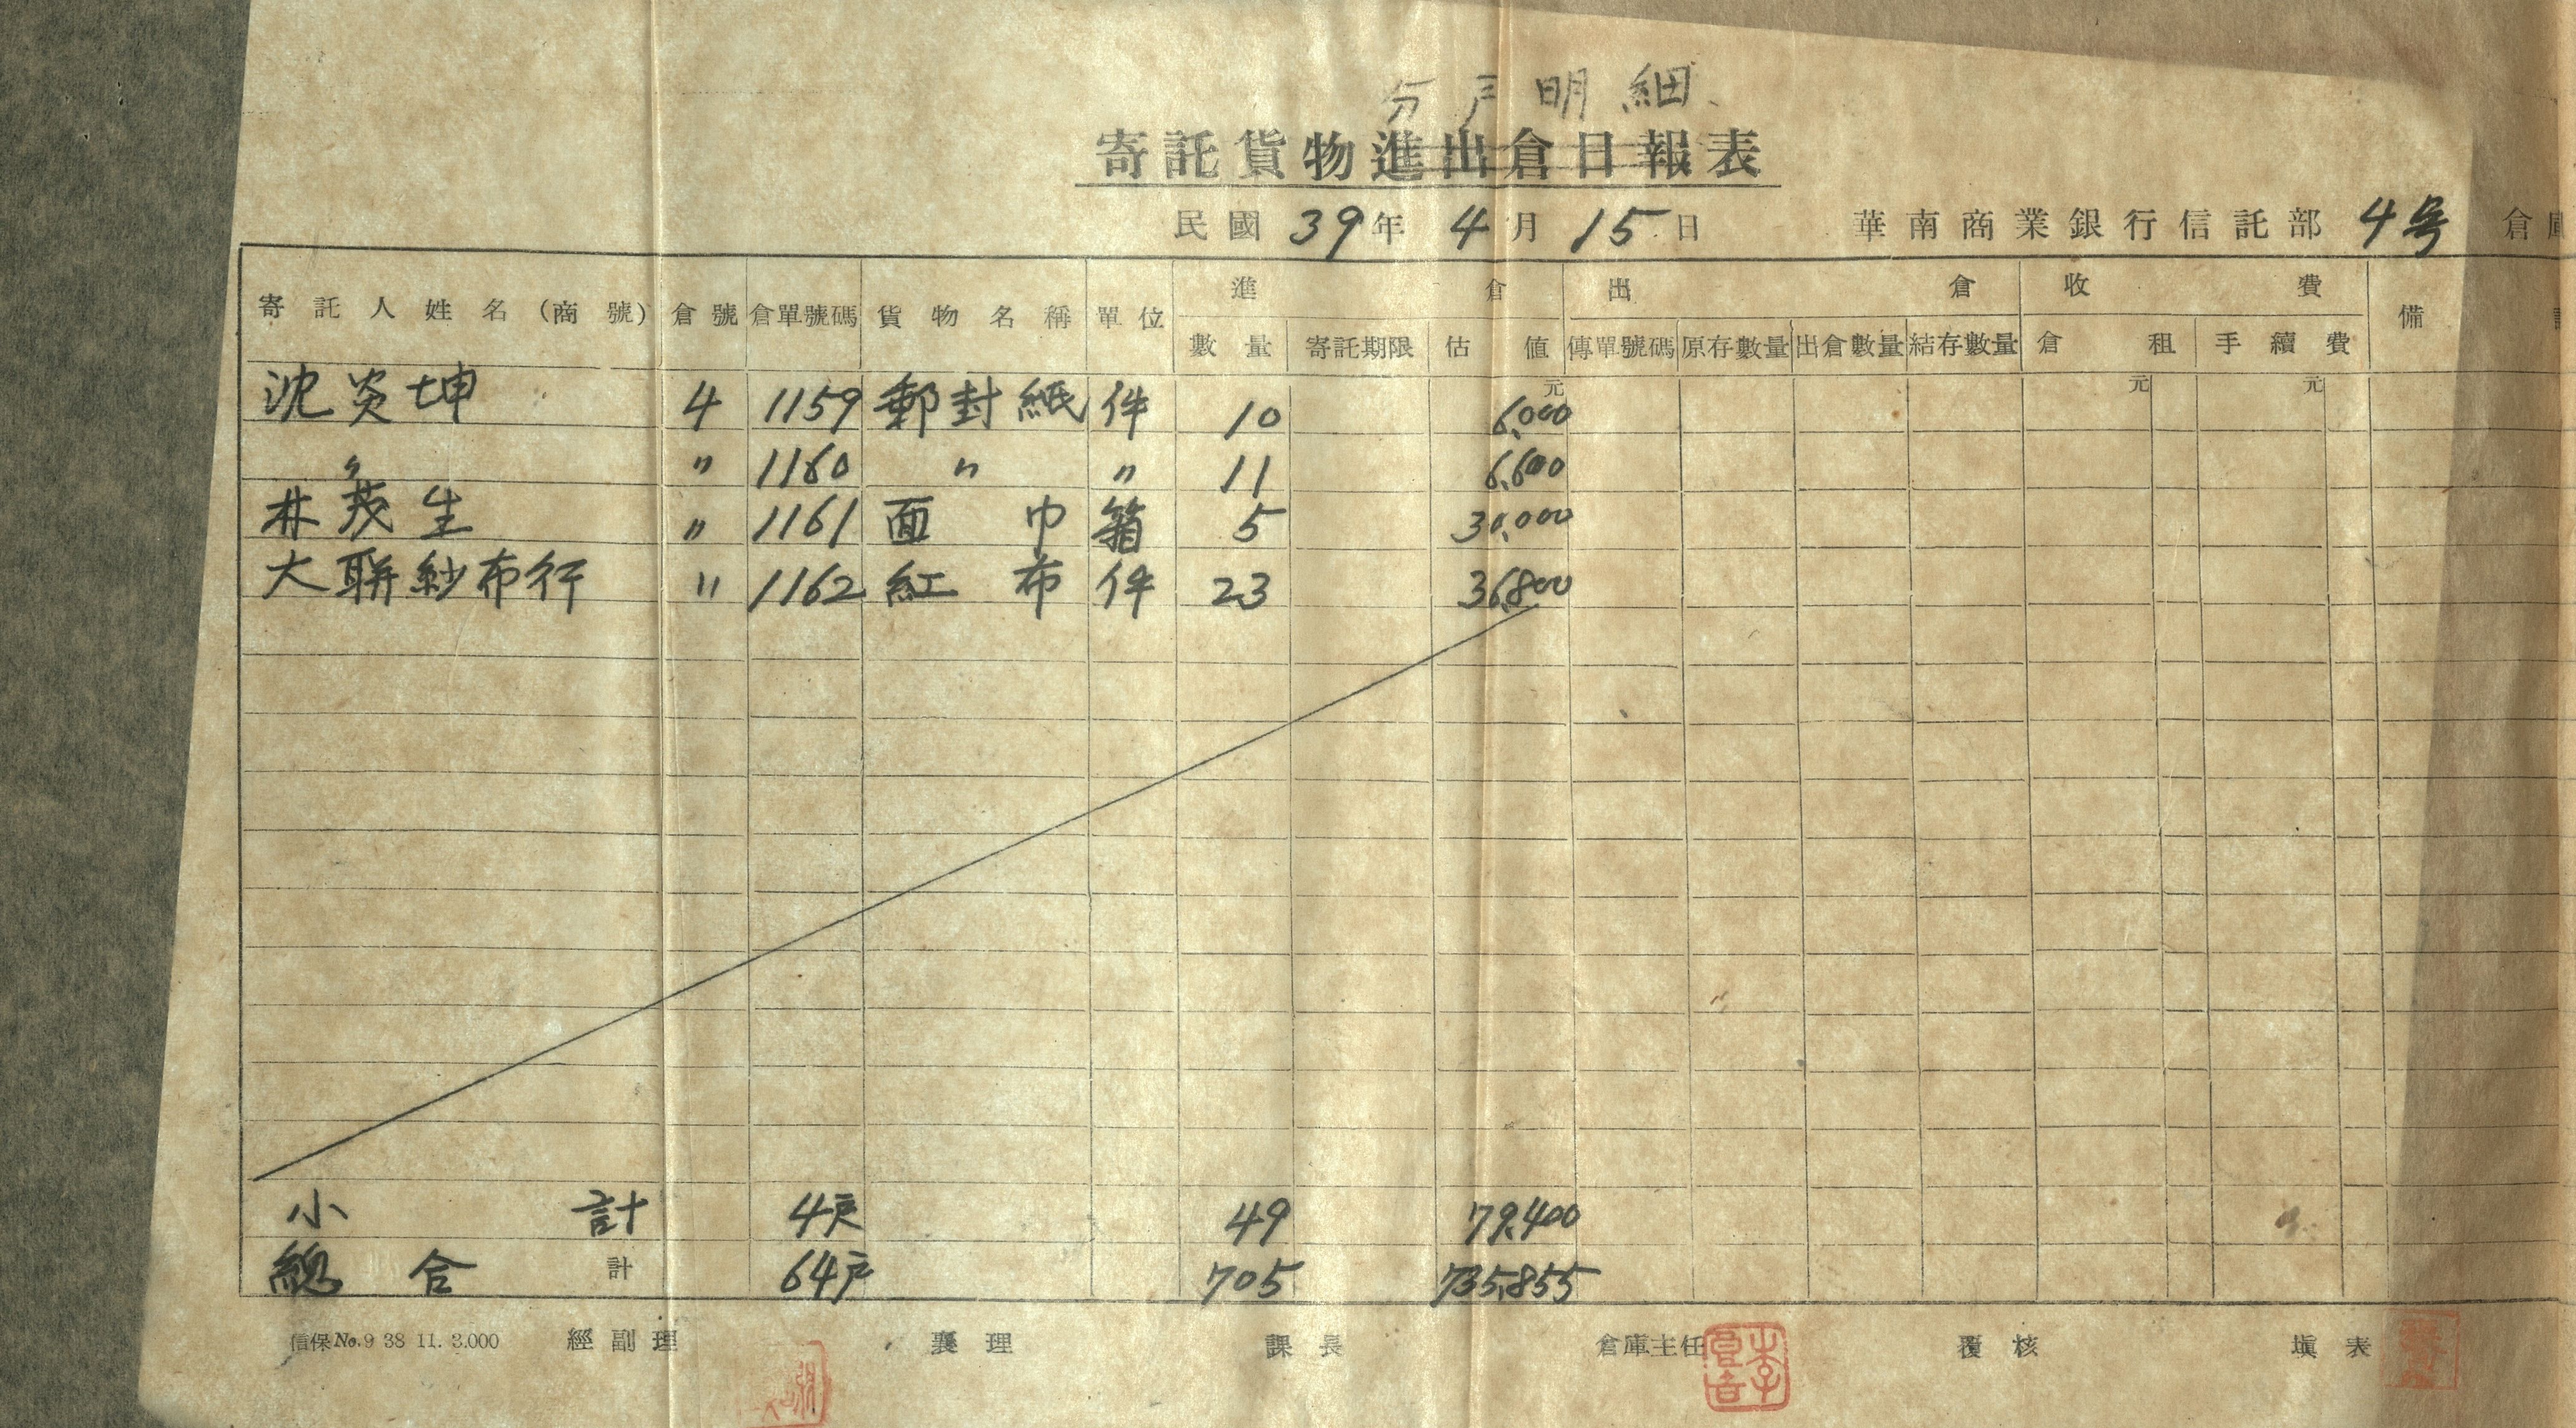 分戶明細
寄託貨物進出倉日報表
民國39年4月15日 華南商業銀行信託部4号倉庫
寄託人姓名(商號) 倉號 倉單號碼 貨物名稱 單位 進倉 出倉 收費 備
數量 寄託期限 估值 傳單號碼 原存數量 出倉數量 結存數量 倉租 手續費
元 元 元
沈炎坤 4 1159 郵封紙 件 10 6,000
〃 〃 1160 〃 〃 11 6,600
林茂生 〃 1161 面巾 箱 5 30,000
大聯紗布行 〃 1162 紅布 件 23 36,800
小計 4戶 49 79,400
總合計 64戶 705 735,855
信保No.9 38 11. 3.000 經副理 襄理 課長 倉庫主任 覆核 填表